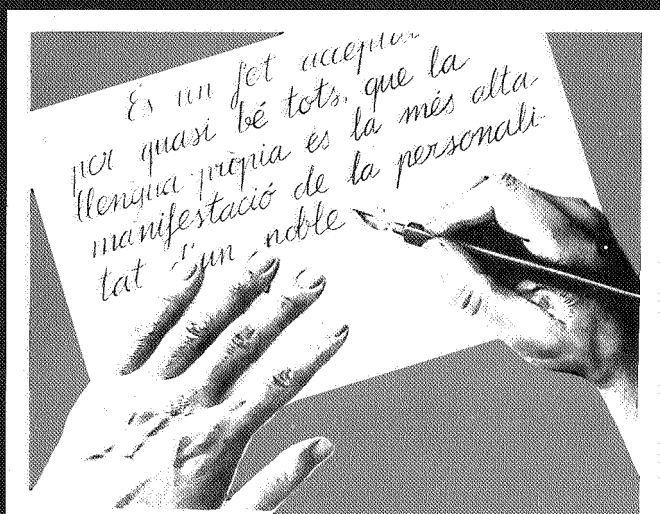 És un fet acceptat
per quasi bé tots, que la
llengua pròpia és la més alta
manifestació de la personali-
tat d'un noble